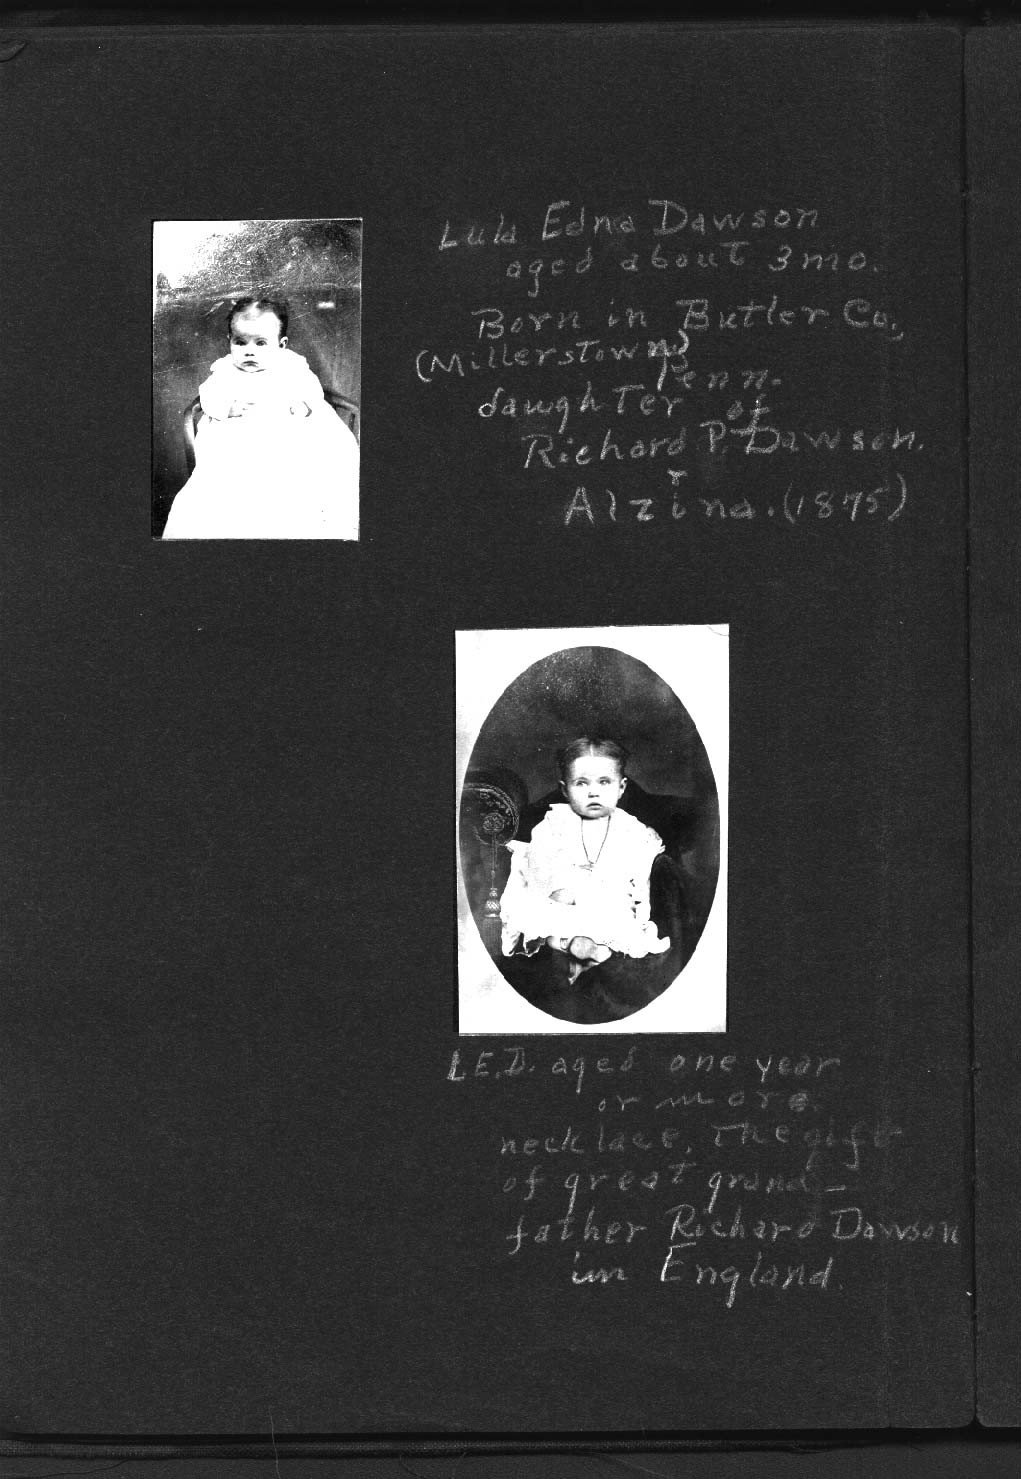 Lula Edna Dawson
aged about 3 mo.
Born in Butler Co.,
(Millerstown)
Penn.
daughter of
Richard P. Dawson.
+
Alzina. (1875)
L.E.D. aged one year
or more.
necklace, The gift
of great grand-
father Richard Dawson
in England.